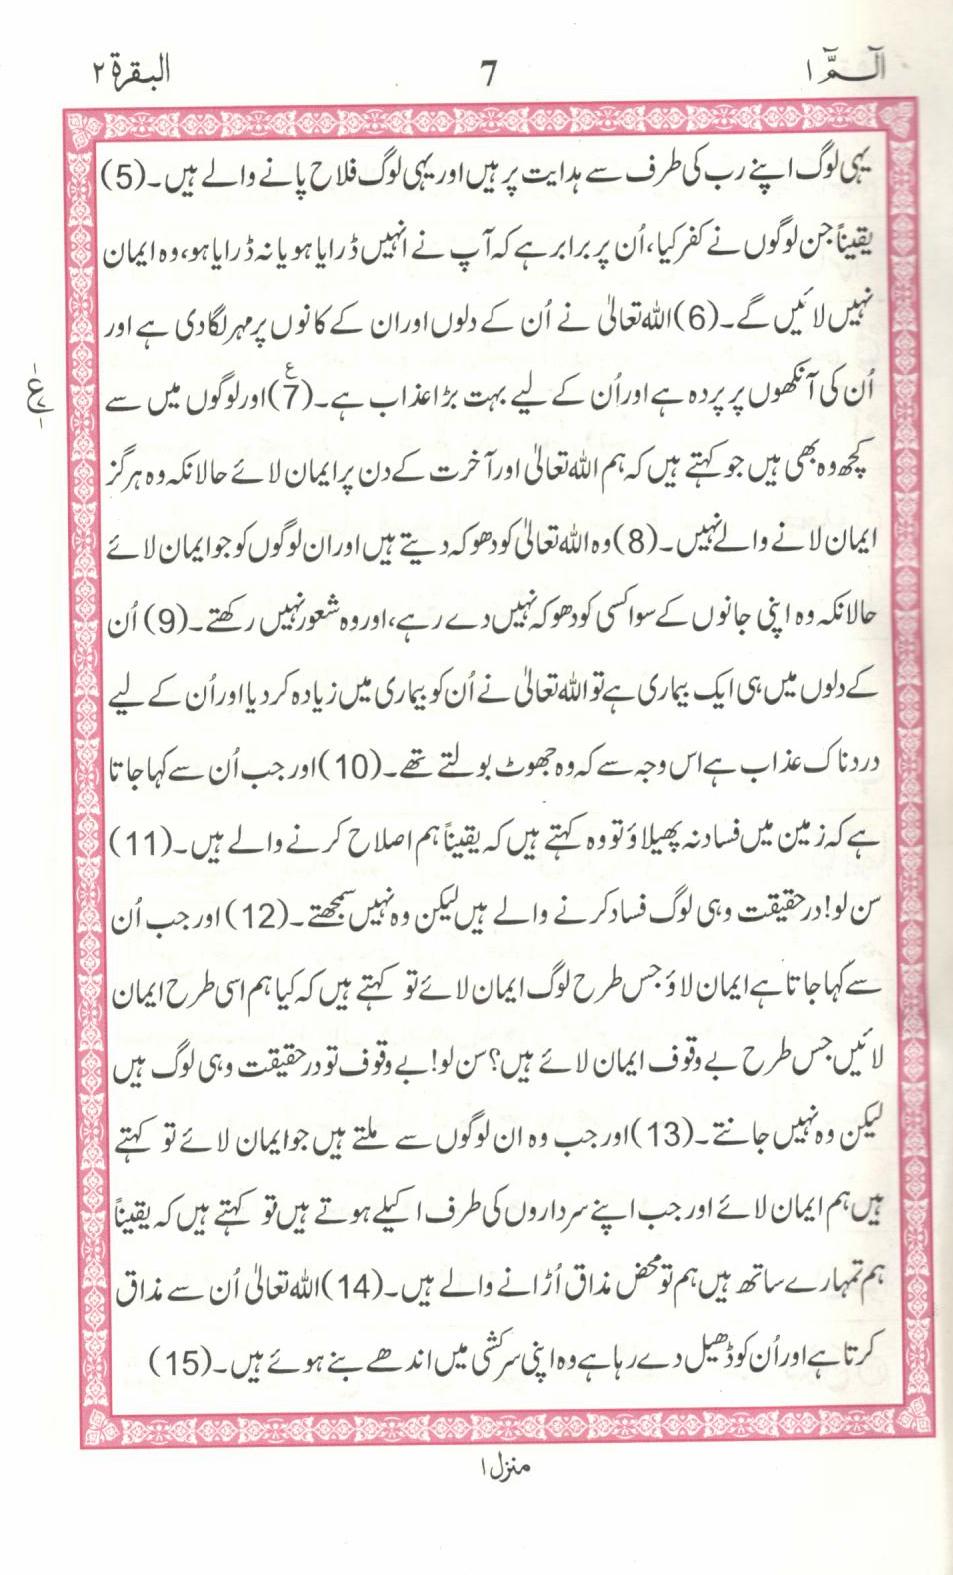 الٓمّٓ ۱ 7 البقرۃ ۲
یہی لوگ اپنے رب کی طرف سے ہدایت پر ہیں اور یہی لوگ فلاح پانے والے ہیں۔(5)
یقیناً جن لوگوں نے کفر کیا، اُن پر برابر ہے کہ آپ نے انہیں ڈرایا ہو یا نہ ڈرایا ہو، وہ ایمان
نہیں لائیں گے۔(6) اللہ تعالیٰ نے اُن کے دلوں اور ان کے کانوں پر مہر لگا دی ہے اور
اُن کی آنکھوں پر پردہ ہے اور اُن کے لیے بہت بڑا عذاب ہے۔(7) اور لوگوں میں سے
کچھ وہ بھی ہیں جو کہتے ہیں کہ ہم اللہ تعالیٰ اور آخرت کے دن پر ایمان لائے حالانکہ وہ ہرگز
ایمان لانے والے نہیں۔(8) وہ اللہ تعالیٰ کو دھوکہ دیتے ہیں اور ان لوگوں کو جو ایمان لائے
حالانکہ وہ اپنی جانوں کے سوا کسی کو دھوکہ نہیں دے رہے، اور وہ شعور نہیں رکھتے۔(9) اُن
کے دلوں میں ہی ایک بیماری ہے تو اللہ تعالیٰ نے اُن کو بیماری میں زیادہ کر دیا اور اُن کے لیے
دردناک عذاب ہے اس وجہ سے کہ وہ جھوٹ بولتے تھے۔(10) اور جب اُن سے کہا جاتا
ہے کہ زمین میں فساد نہ پھیلاؤ تو وہ کہتے ہیں کہ یقیناً ہم اصلاح کرنے والے ہیں۔(11)
سن لو! درحقیقت وہی لوگ فساد کرنے والے ہیں لیکن وہ نہیں سمجھتے۔(12) اور جب اُن
سے کہا جاتا ہے ایمان لاؤ جس طرح لوگ ایمان لائے تو کہتے ہیں کہ کیا ہم اسی طرح ایمان
لائیں جس طرح بے وقوف ایمان لائے ہیں؟ سن لو! بے وقوف تو درحقیقت وہی لوگ ہیں
لیکن وہ نہیں جانتے۔(13) اور جب وہ ان لوگوں سے ملتے ہیں جو ایمان لائے تو کہتے
ہیں ہم ایمان لائے اور جب اپنے سرداروں کی طرف اکیلے ہوتے ہیں تو کہتے ہیں کہ یقیناً
ہم تمہارے ساتھ ہیں ہم تو محض مذاق اُڑانے والے ہیں۔(14) اللہ تعالیٰ اُن سے مذاق
کرتا ہے اور اُن کو ڈھیل دے رہا ہے وہ اپنی سرکشی میں اندھے بنے ہوئے ہیں۔(15)
منزل ۱